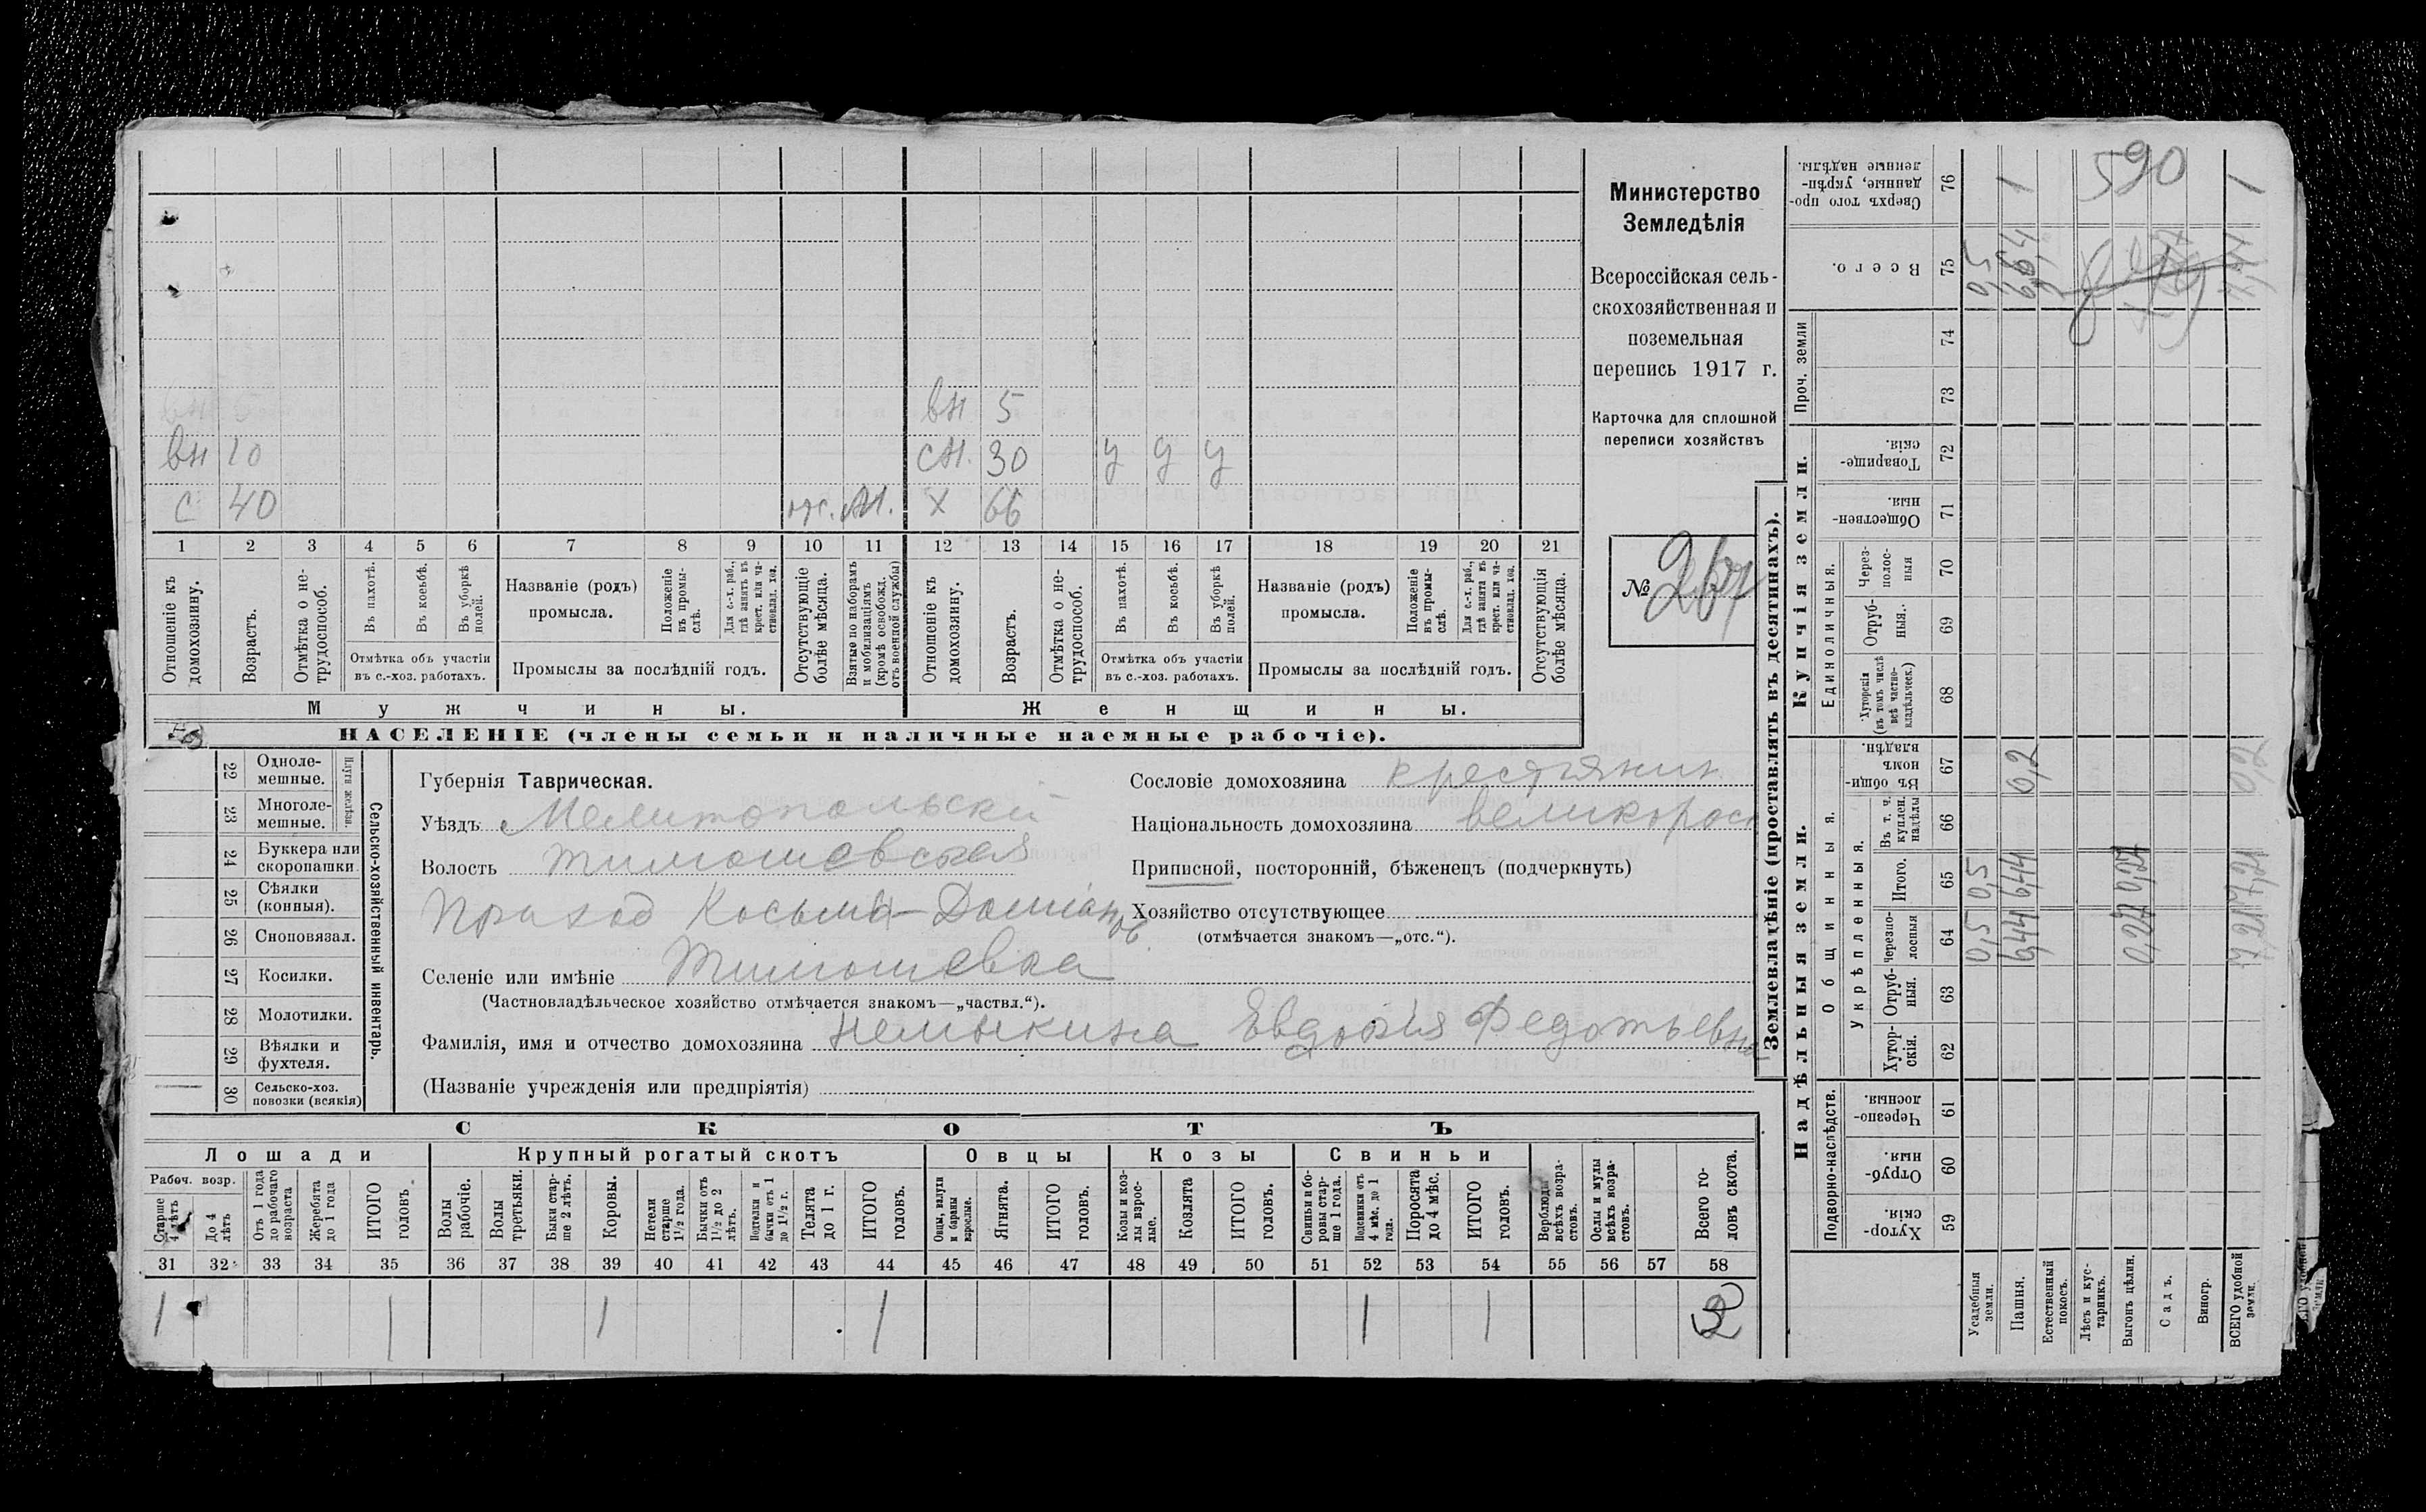 Министерство
Земледѣлія
Всероссійская сель-
скохозяйственная и
поземельная
перепись 1917 г.
Карточка для сплошной
переписи хозяйствъ
№
вн 5
вн 10 сн. 30 у у у
с 40 м. х 66
1 2 3 4 5 6 7 8 9 10 11 12 13 14 15 16 17 18 19 20 21
Отношеніе къ домохозяину.
Возрастъ.
Отмѣтка о не-трудоспособ.
Въ пахотѣ.
Въ косьбѣ.
Въ уборкѣ полей.
Отмѣтка объ участіи
въ с.-хоз. работахъ.
Названіе (родъ)
промысла.
Положеніе въ промы-слѣ.
Для с.-х. раб., гдѣ занятъ въ крест. или ча-стновлад. хоз.
Промыслы за послѣдній годъ.
Отсутствующіе болѣе мѣсяца.
Взятые по наборамъ и мобилизаціямъ (кромѣ освобожд. отъ военной службы)
Отношеніе къ домохозяину.
Возрастъ.
Отмѣтка о не-трудоспособ.
Въ пахотѣ.
Въ косьбѣ.
Въ уборкѣ полей.
Отмѣтка объ участіи
въ с.-хоз. работахъ.
Названіе (родъ)
промысла.
Положеніе въ промы-слѣ.
Для с.-х. раб., гдѣ занята въ крест. или ча-стновлад. хоз.
Промыслы за послѣдній годъ.
Отсутствующія болѣе мѣсяца.
Мужчины. Женщины.
НАСЕЛЕНІЕ (члены семьи и наличные наемные рабочіе).
22 Однолемешные.
23 Многолемешные.
Плуги желѣзн.
24 Буккера или скоропашки
25 Сѣялки (конныя).
26 Сноповязал.
27 Косилки.
28 Молотилки.
29 Вѣялки и фухтеля.
30 Сельско-хоз. повозки (всякія)
Сельско-хозяйственный инвентарь.
Губернія Таврическая.
Уѣздъ Мелитопольскій
Волость Тимошевская
Приход Косьма-Даміановъ
Селеніе или имѣніе Тимошевка
(Частновладѣльческое хозяйство отмѣчается знакомъ—„частвл.“).
Фамилія, имя и отчество домохозяина Немыкина Евдокія Федотьевна
(Названіе учрежденія или предпріятія)
Сословіе домохозяина крестьянин
Національность домохозяина великорос
Приписной, посторонній, бѣженецъ (подчеркнуть)
Хозяйство отсутствующее
(отмѣчается знакомъ—„отс.“).
СКОТЪ
Лошади Крупный рогатый скотъ Овцы Козы Свиньи
Рабоч. возр.
Старше 4 лѣтъ
До 4 лѣтъ
Отъ 1 года до рабочаго возраста
Жеребята до 1 года
ИТОГО головъ.
Волы рабочіе.
Волы третьяки.
Быки стар-ше 2 лѣтъ.
Коровы.
Нетели старше 1½ года.
Бычки отъ 1½ до 2 лѣтъ.
Подтелки и бычки отъ 1 до 1½ г.
Телята до 1 г.
ИТОГО головъ.
Овцы, валухи и бараны взрослые.
Ягнята.
ИТОГО головъ.
Козы и коз-лы взрос-лые.
Козлята
ИТОГО головъ.
Свиньи и бо-ровы стар-ше 1 года.
Подсвинки отъ 4 мѣс. до 1 года.
Поросята до 4 мѣс.
ИТОГО головъ.
Верблюды всѣхъ возра-стовъ.
Ослы и мулы всѣхъ возра-стовъ.
Всего го-ловъ скота.
31 32 33 34 35 36 37 38 39 40 41 42 43 44 45 46 47 48 49 50 51 52 53 54 55 56 57 58
1 1 1 1 1 1
Землевладѣніе (проставлять въ десятинахъ).
Надѣльныя земли. Купчія земли. Проч. земли
Подворно-наслѣдств.
Общинныя.
Укрѣпленныя.
Единоличныя.
59 Хутор-скія.
60 Отруб-ныя.
61 Черезпо-лосныя.
62 Хутор-скія.
63 Отруб-ныя.
64 Черезпо-лосныя
65 Итого.
66 Въ т. ч. куплен. надѣлы
67 Въ общи-номъ владѣн.
68 Хуторскія (въ томъ числѣ всѣ частно-владѣльческ.)
69 Отруб-ныя.
70 Через-полос-ныя
71 Обществен-ныя.
72 Товарище-скія.
73
74
75 Всего.
76 Сверхъ того про-данные, укрѣп-ленные надѣлы.
Усадебныя земли. 0,5 0,5 0,5
Пашня. 6,44 6,44 0,2 6,64 1
Естественный покосъ.
Лѣсъ и кус-тарникъ.
Выгонъ цѣлин. 0,27 0,27
Садъ.
Виногр.
ВСЕГО удобной земли. 0,2 1
590